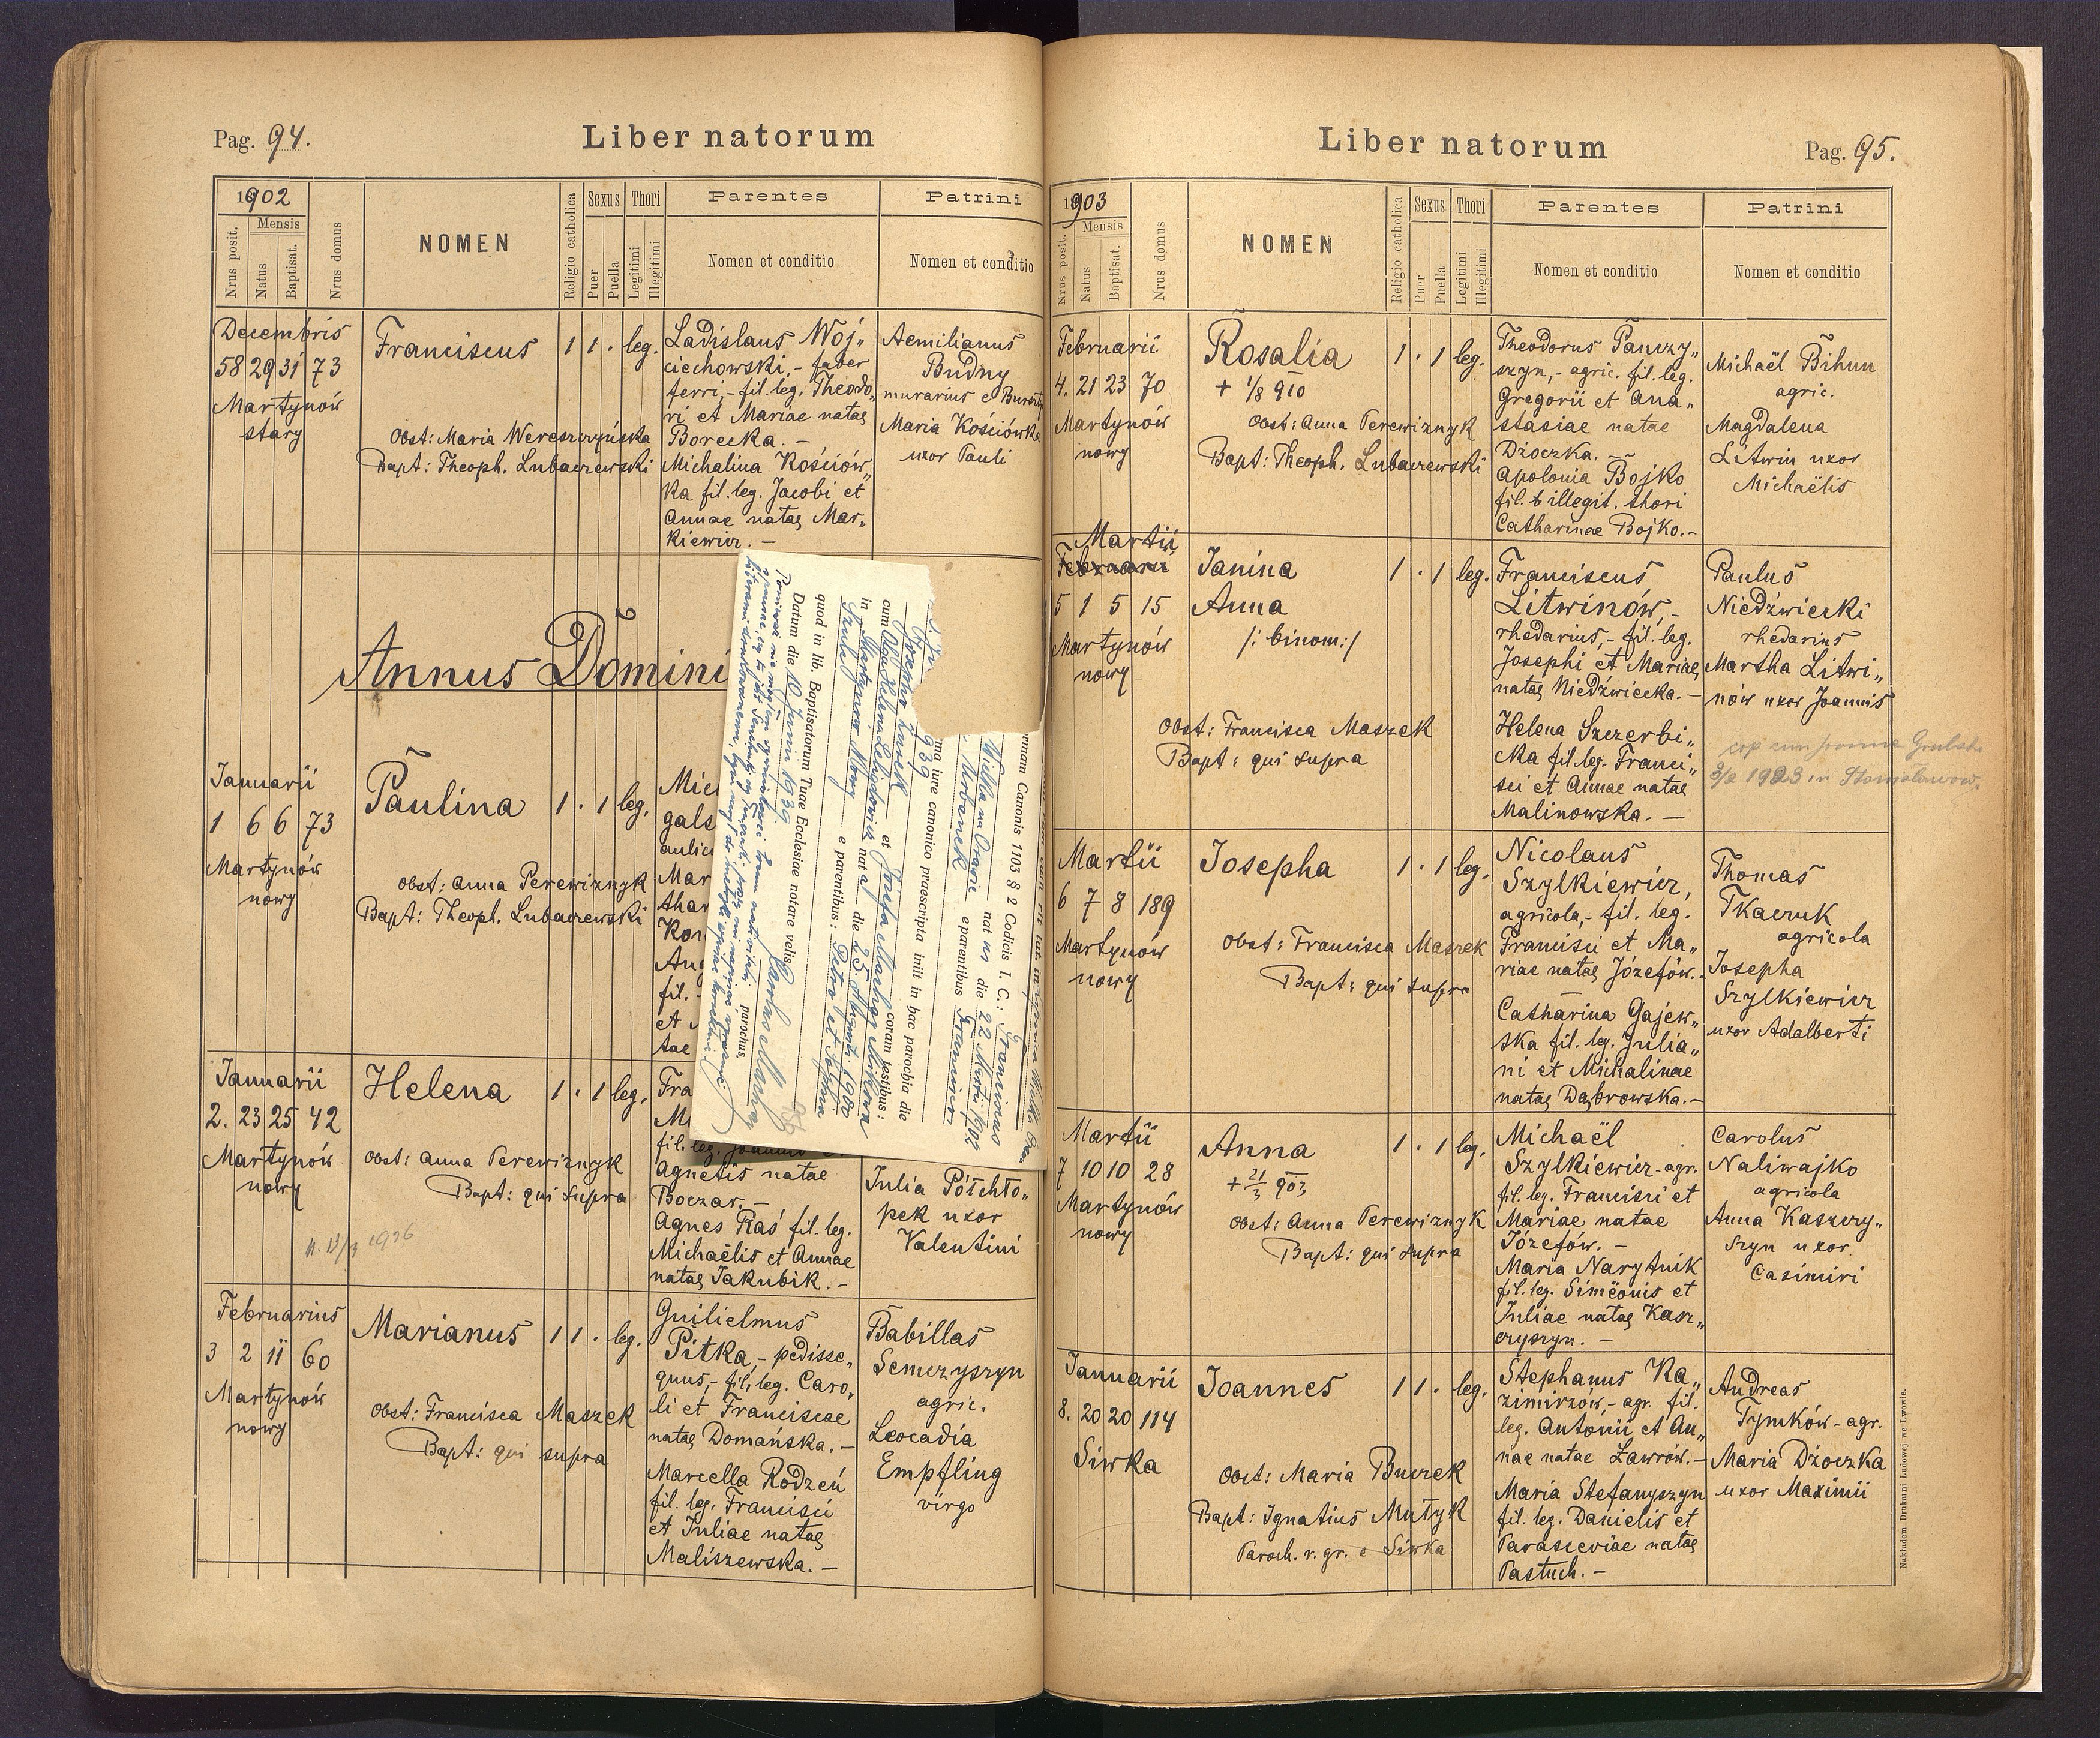 Pag. 94.
Liber natorum
1902
Mensis
Nrus posit.
Natus
Baptisat.
Nrus domus
NOMEN
Religio catholica
Sexus
Puer
Puella
Thori
Legitimi
Illegitimi
Parentes
Nomen et conditio
Patrini
Nomen et conditio
Decembris
58 29 31 73
Martynów
stary
Franciscus
1 1 . leg.
Obst: Maria Wereszczyńska
Bapt: Theoph. Lubaczewski
Ladislaus Woj„
ciechowski, - faber
ferri, - fil. leg. Theodo„
ri et Mariae natae
Borecka. -
Michalina Kościów„
ka fil. leg. Jacobi et
Annae natae Mar„
kiewicz. -
Aemilianus
Budny
murarius e
Maria Kościówka
uxor Pauli
Annus Domini
Januarii
1 6 6 73
Martynów
nowy
Paulina
1 . 1 leg.
Obst: Anna Perewiznyk
Bapt: Theoph. Lubaczewski
Januarii
2. 23 25 42
Martynów
nowy
Helena
1 . 1 leg.
Obst: Anna Perewiznyk
Bapt: qui supra
1926
fil. leg.
Agnetis natae
Boczar. -
Agnes Raś fil. leg.
Michaëlis et Annae
natae Jakubik. -
Julia Półchło„
pek uxor
Valentini
Februarius
3 2 11 60
Martynów
nowy
Marianus
1 1 . leg.
Obst: Francisca Maszek
Bapt: qui supra
Guilielmus
Pitka, - pedisse„
quus, - fil. leg. Caro„
li et Franciscae
natae Domańska. -
Marcella Rodzeń
fil. leg. Francisci
et Juliae natae
Maliszewska. -
Babillas
Semczyszyn
agric.
Leocadia
Empfling
virgo
rmam Canonis 1103 § 2 Codicis I. C.: Franciscus
Urbanek nat us die 22 Martii 1902
e parentibus
iure canonico praescripta iniit in hac parochia die
1939 coram testibus:
et
cum
nat a die 25 1900
in Martynów Nowy e parentibus: Petro et
quod in lib. Baptisatorum Tuae Ecclesiae notare velis.
Datum die 10 Junii 1939
parochus.
Pag. 95.
Liber natorum
1903
Mensis
Nrus posit.
Natus
Baptisat.
Nrus domus
NOMEN
Religio catholica
Sexus
Puer
Puella
Thori
Legitimi
Illegitimi
Parentes
Nomen et conditio
Patrini
Nomen et conditio
Februarii
4. 21 23 70
Martynów
nowy
Rosalia
+ 1/8 910
1 . 1 leg.
Obst: Anna Perewiznyk
Bapt: Theoph. Lubaczewski
Theodorus Panczy„
szyn, - agric. fil. leg.
Gregorii et Ana„
stasiae natae
Dżoczka. -
Apolonia Bojko
fil. illegit. thori
Catharinae Bojko. -
Michaël Bihun
agric.
Magdalena
Litwin uxor
Michaëlis
Martii
Februarii
5 1 5 15
Martynów
nowy
Janina
Anna
/: binom :/
1 . 1 leg.
Obst: Francisca Maszek
Bapt: qui supra
Franciscus
Litwinów, -
rhedarius, - fil. leg.
Josephi et Mariae
natae Niedźwiecka. -
Helena Szczerbi„
cka fil. leg. Franci„
sci et Annae natae
Malinowska. -
Paulus
Niedźwiecki
rhedarius
Martha Litwi„
nów uxor Joannis
1923 in Stanisławow.
Martii
6 7 8 189
Martynów
nowy
Josepha
1 . 1 leg.
Obst: Francisca Maszek
Bapt: qui supra
Nicolaus
Szylkiewicz,
agricola, - fil. leg.
Francisci et Ma„
riae natae Józefów. -
Catharina Gajew„
ska fil. leg. Julia„
ni et Michalinae
natae Dąbrowska. -
Thomas
Tkaczuk
agricola
Josepha
Szylkiewicz
uxor Adalberti
Martii
7 10 10 28
Martynów
nowy
Anna
+ 21/3 903
1 . 1 leg.
Obst: Anna Perewiznyk
Bapt: qui supra
Michaël
Szylkiewicz - agr.
fil. leg. Francisci et
Mariae natae
Józefów. -
Maria Narytnik
fil. leg. Simeonis et
Juliae natae Kasz„
czyszyn. -
Carolus
Naliwajko
agricola
Anna Kaszczy„
szyn uxor
Casimiri
Januarii
8. 20 20 114
Siwka
Joannes
1 1 . leg.
Obst: Maria Buczek
Bapt: Ignatius Mutyk
Paroch. r. gr. e Siwka
Stephanus Ka„
zimirzów, - agr. fil.
leg. Antonii et An„
nae natae Ławrów. -
Maria Stefanyszyn
fil. leg. Danielis et
Parasceviae natae
Pastuch. -
Andreas
Tymków - agr.
Maria Dżoczka
uxor Maximii
Nakładem Drukarni Ludowej we Lwowie.